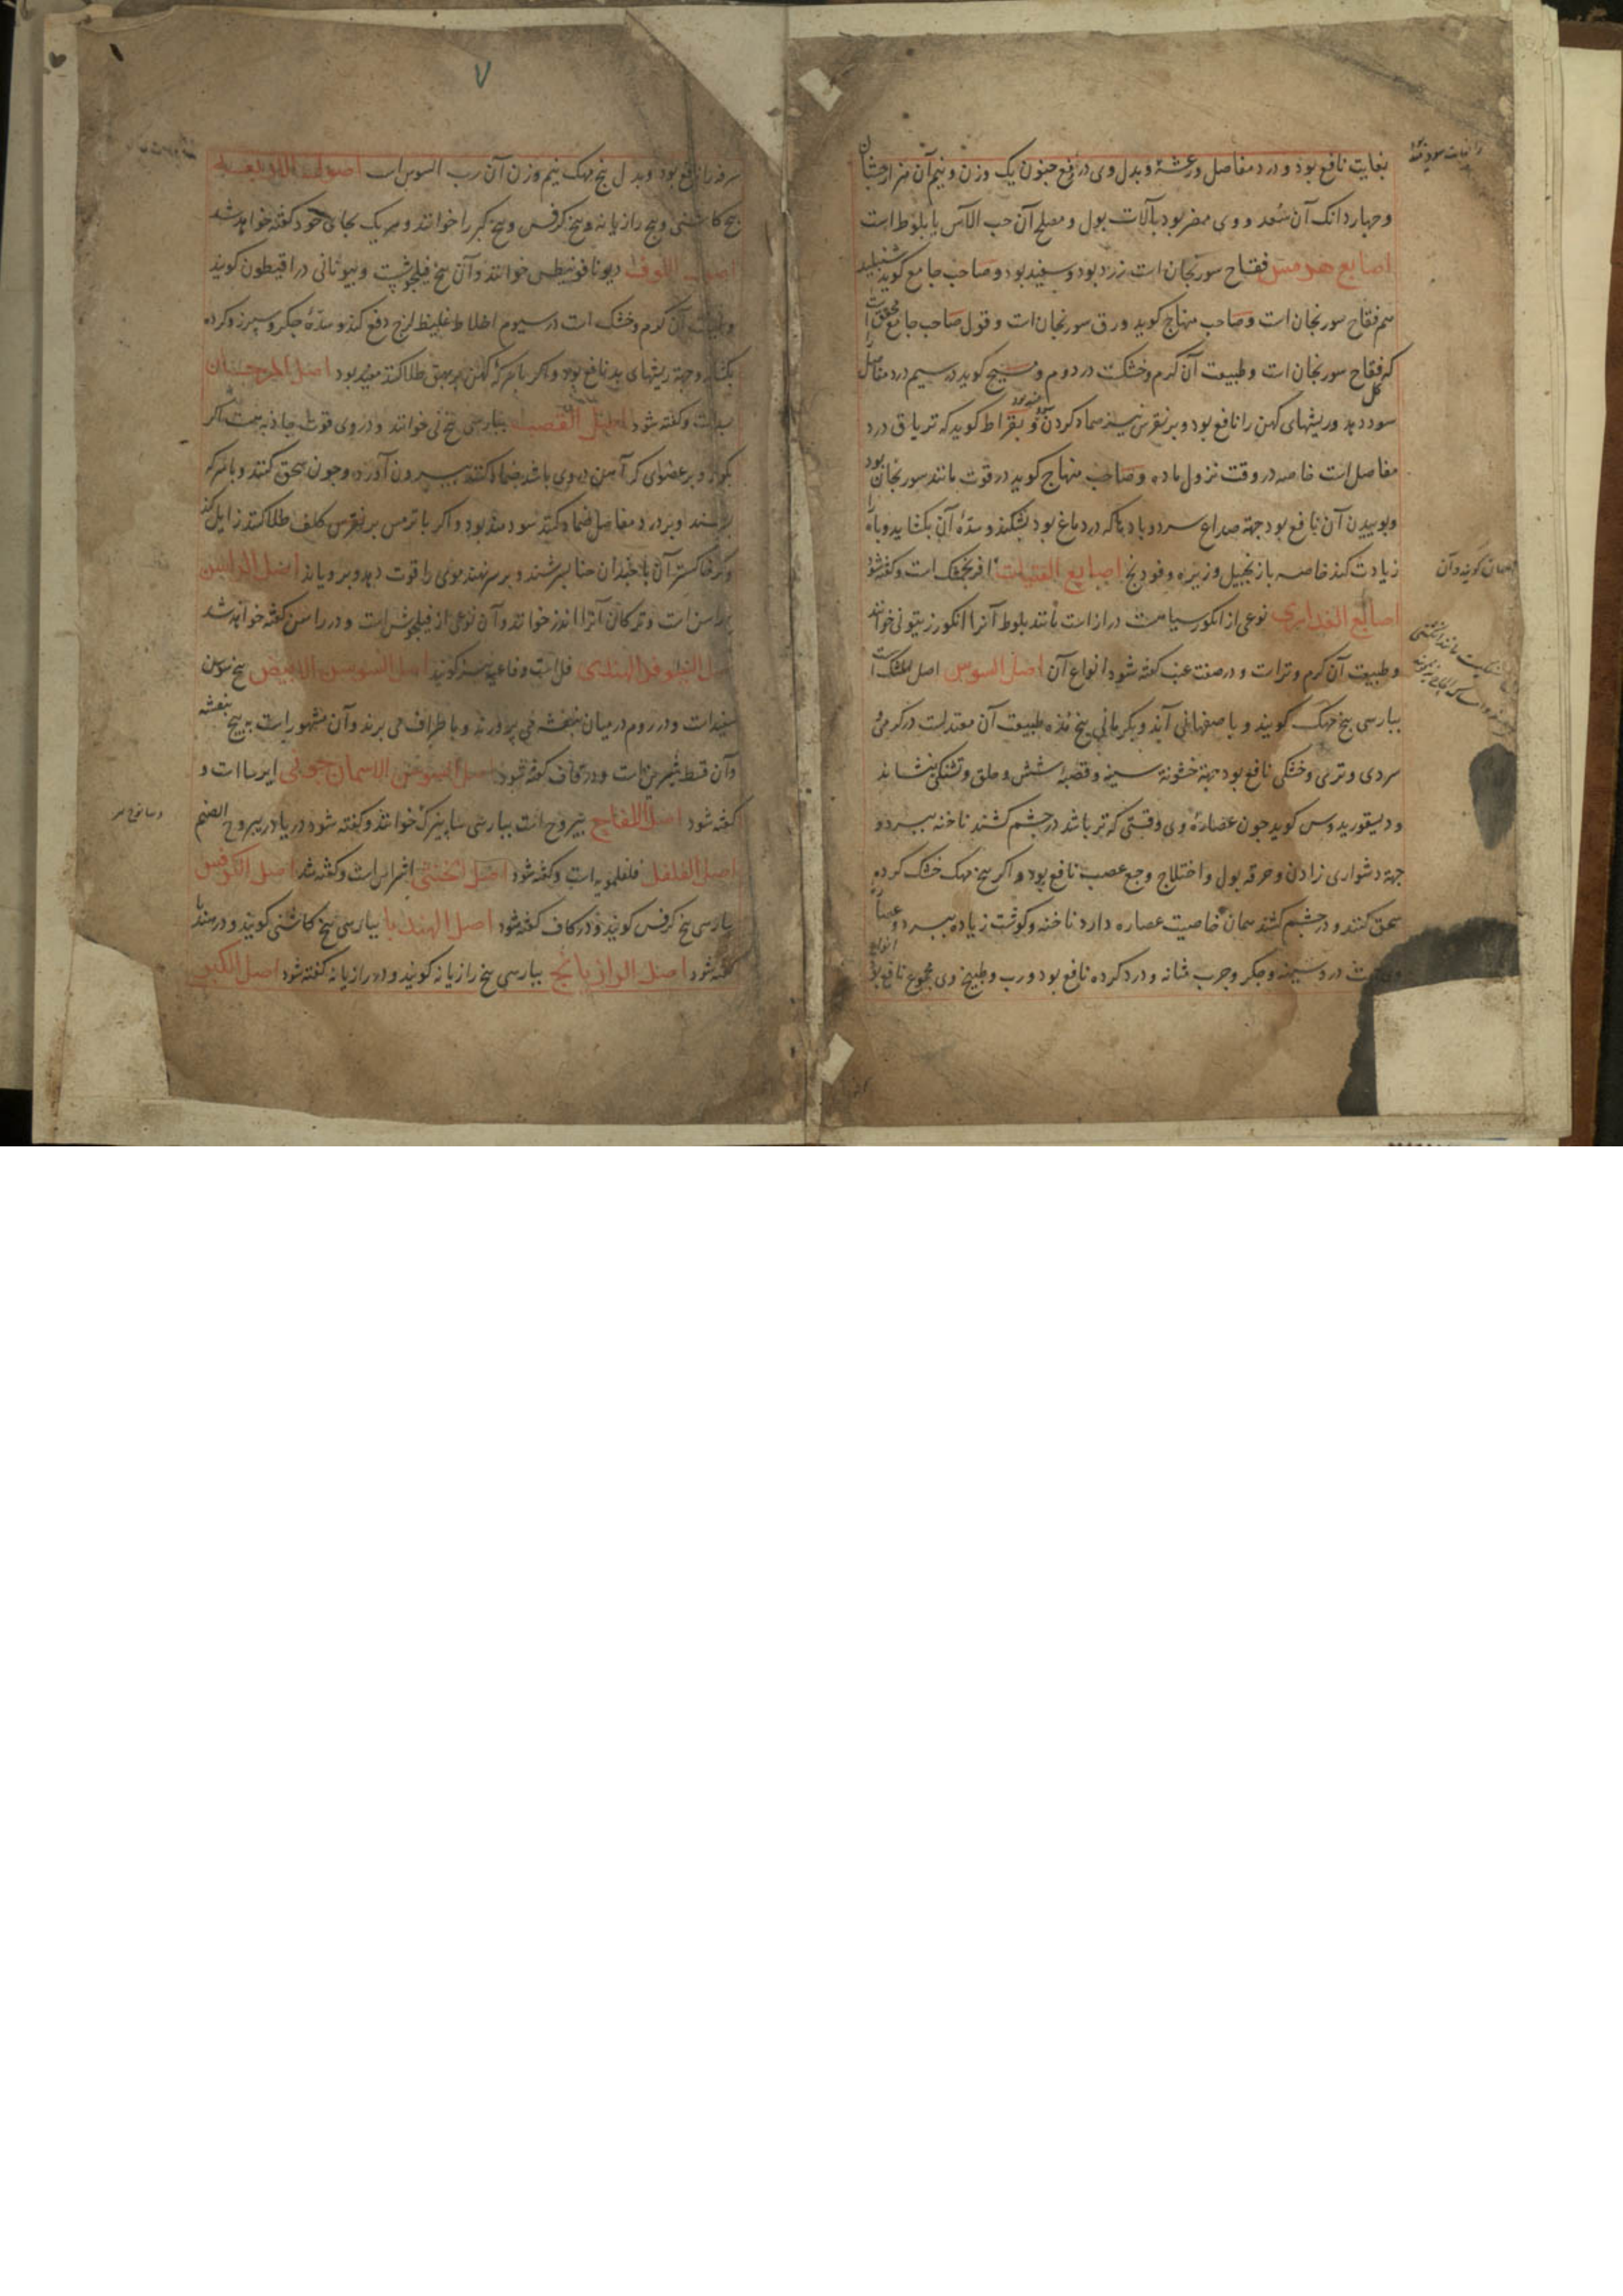 بغایت نافع بود و درد مفاصل و رعشهٔ و بدل وی در رفع جنون یک وزن و نیم آن هزارجشان
و چهار دانک آن سُعد و وی مضر بود بآلات بول و مصلح آن حب الآس یا بلوط است
اصابع هرمس فقاح سورنجان است زرد بود و سفید بود و صاحب جامع گوید شنبلید
هم فقاح سورنجان است و صاحب منهاج کوید ورق سورنجان است و قول صاحب جامع محقق است
که فقاح سورنجان است و طبیعت آن کرم و خشکست در دوم و مسیح کوید در سیم درد مفاصل را
سود دهد و ریشهای کهن را نافع بود و بر نقرس نیز ضماد کردن و بقراط کوید که تریاق درد کل
مفاصل است خاصه در وقت نزول ماده و صاحب منهاج کوید در قوت مانند سورنجان بود
و بوییدن آن نافع بود جهة صداع سرد و بادها که در دماغ بود بشکند و سدّهٔ آن بکشاید و باه را
زیادت کند خاصه با زنجبیل و زیره و فودنج اصابع الفتیات افرنجمشک است و کفته شود
اصابع العذاری نوعی از انکور سیاهست دراز است مانند بلوط آنرا انکور زیتونی خوانند
و طبیعت آن کرم و تر است و در صفت عنب کفته شود انواع آن اصل السوس اصل المشک است
بپارسی بیخ مهک کویند و باصفهانی آید و بکرمانی بیخ مُذه طبیعت آن معتدلست در کرمی و
سردی و تری و خشکی نافع بود جهة خشونة سینه و قصبهٔ شش و حلق و تشنکی بنشاند
و دیسقوریدوس کوید چون عصارهٔ وی وقتی که تر باشد در چشم کشند ناخنه ببرد و
جهة دشواری زادن و حرقه بول و اختلاج و وجع عصب نافع بود و اکر بیخ مهک خشک کرده
سحق کنند و در چشم کشند همان خاصیت عصاره دارد ناخنه و کوشت زیاده ببرد و عصاره
درد سینه و جکر و جرب مثانه و درد کرده نافع بود و رب و طبیخ وی مجموع نافع بود انواع
کویند و آن
۷
سرفه را نافع بود و بدل بیخ مهک نیم وزن آن رب السوس است اصول الاربعه
بیخ کاسنی و بیخ رازیانه و بیخ کرفس و بیخ کبر را خوانند و هر یک بجای خود کفته خواهد شد
اصل اللوف دیونافونیطس خوانند و آن بیخ فیلجوشست و بیونانی دراقیطون کویند
و طبیعت آن کرم و خشک است در سیوم اخلاط غلیظ لزج دفع کند و سدّهٔ جکر و سپرز و کرده
بکشاید و جهة ریشهای بد نافع بود و اکر با سرکهٔ کهن بر بهق طلا کنند مفید بود اصل المرجان
بسد است و کفته شود اصل القصب بپارسی بیخ نی خوانند و در وی قوت جاذبه هست اکر
بکوبند و بر عضوی که آهن در وی باشد ضماد کنند بیرون آورد و چون سحق کنند و با سرکه
بسرشند و بر درد مفاصل ضماد کنند سودمند بود و اکر با ترمس بر نقرس کلف طلا کنند زایل کند
و اکر خاکستر آن با چندان حنا بسرشند و بر سر نهند موی را قوت دهد و برویاند اصل الراسن
راسن است و ترکان آنرا اندز خوانند و آن نوعی از فیلجوش است و در راسن کفته خواهد شد
اصل النیلوفر الهندی فل است و فاغیه نیز کویند اصل السوسن الابیض بیخ سوسن
سفید است و در روم در میان بنفشه می پرورند و باطراف می برند و آن مشهور است به بیخ بنفشه
و آن قسط شیرین است و در قاف کفته شود اصل السوسن الاسمانجونی ایرسا است و
کفته شود اصل اللفاح یبروح است بپارسی سابیزک خوانند و کفته شود در یا در یبروح الصنم
اصل الفلفل فلفلمویه است و کفته شود اصل الخنثی اشراس است و کفته شد اصل الکرفس
بپارسی بیخ کرفس کویند و در کاف کفته شود اصل الهندبا بپارسی بیخ کاسنی کویند و در هندبا
کفته شود اصل الرازیانج بپارسی بیخ رازیانه کویند و در رازیانه کفته شود اصل الکبر